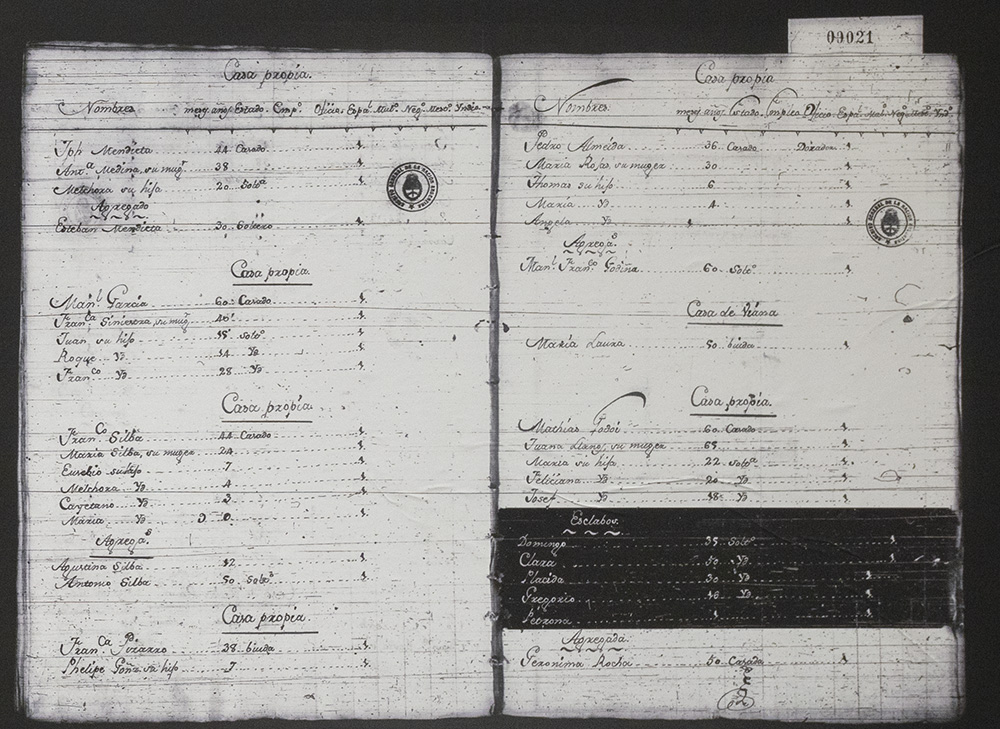 00021
Casa propia.
Nombres. mes.s años. Estado. Emp.o Oficio. Esp.l Mul.o Neg.o Mest.o Yndio
Jph Mendieta 44 Casado 1
Ant.a Medina, su mug.r 38 1
Melchora su hija 20 Solt.a 1
Agregado
Esteban Mendieta 30 Soltero 1
Casa propia
Man.l Garcia 60 Casado 1
Fran.ca Siniestra, su mug.r 1
Juan, su hijo 15 Solt.o 1
Roque Yd 14 Yd 1
Fran.co Yd 28 Yd 1
Casa propia
Fran.co Silba 44 Casado 1
Maria Silba, su muger 24 1
Eusebio su hijo 7 1
Melchora Yd 4 1
Cayetano Yd 3 1
Maria Yd 1
Agrega.s
Agustina Silba 12 1
Antonio Silba 50 Solt.o 1
Casa propia.
Fran.ca Pizarro 38 biuda 1
Phelipe Gonz. su hijo 7 1
Casa propia
Nombres. mes.s años. Estado. Emp.co Oficio. Esp.l Mul.o Neg.o Mest.o Ynd.o
Pedro Almeida 36 Casado Dorador 1
Maria Rojas, su muger 30 1
Thomas su hijo 6 1
Maria Yd 4 1
Angela Yd 1
Agrega.s
Man.l Fran.co Godiña 60 Solt.o 1
Casa de Viana
Maria Laura 50 biuda 1
Casa propia.
Mathias Godoi 60 Casado 1
Juana su muger 65 1
Maria su hija 22 Solt.a 1
Feliciana Yd 20 Yd 1
Josef Yd 18 Yd 1
Esclabos.
Domingo 35 Solt.o 1
Clara 50 Yd 1
Placida 30 Yd 1
Gregorio 16 Yd 1
Petrona 1 1
Agregada
Geronima Rocha 50 Casada 1